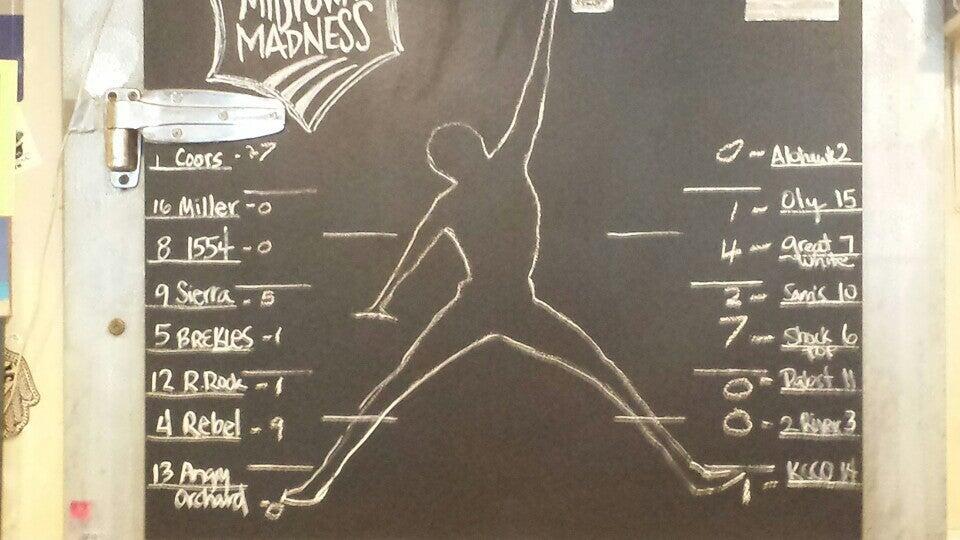 MIDTOWN
MADNESS
1 Coors - 27
16 Miller - 0
8 1554 - 0
9 Sierra - 5
5 BREKLES - 1
12 R. Rock - 1
4 Rebel - 9
13 Angry
Orchard - 0
0 - Alphawk 2
1 - Oly 15
4 - Great 7
White
2 - Sam's 10
7 - Shock 6
TOP
0 - Pabst 11
0 - 2 River 3
1 - KCCO 14